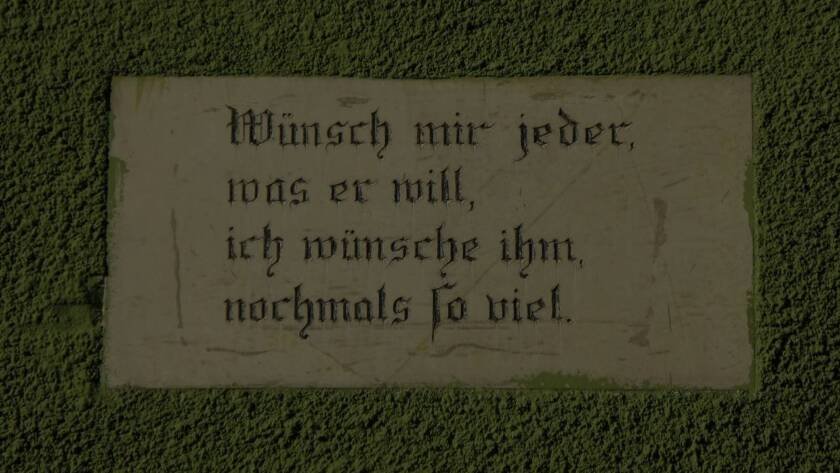 Wünsch mir jeder,
was er will,
ich wünsche ihm,
nochmals ſo viel.